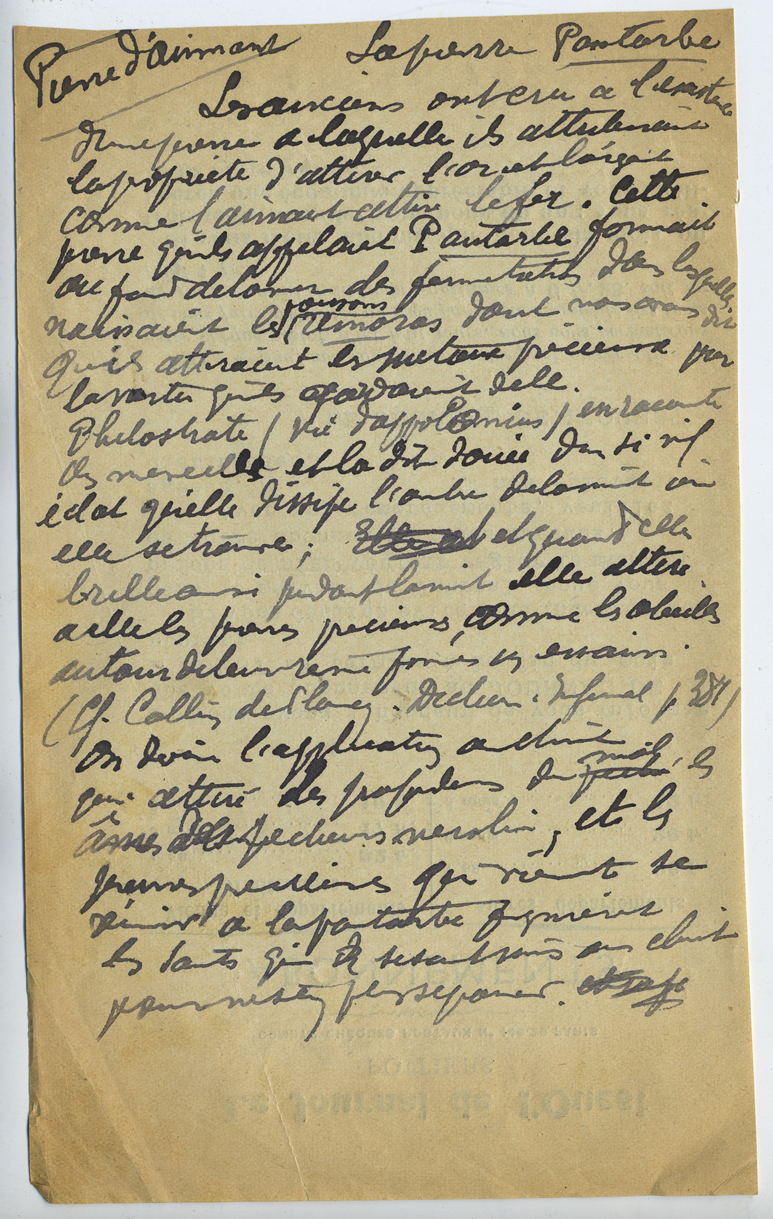 Pierre d'aimant La pierre Pantarbe
Les anciens ont cru a l'existence
d'une pierre a laquelle ils attribuaient
la propriété d'attirer l'or et l'argent
comme l'aimant attire le fer. Cette
pierre qu'ils appelaient Pantarbe formait
au fond de la mer des fermentations dans lesquelles
naissaient les poissons remoras dont nous avons dit
qu'ils attiraient les métaux précieux par
la vertu qu'ils gardaient d'elle.
Philostrate (vie d'appolonius) en raconte
des merveilles et la dit douée d'un si vif
éclat qu'elle dissipe l'ombre de la nuit où
elle se trouve; et quand elle
brille ainsi pendant la nuit elle attire
a elle les pierres précieuses, comme les abeilles
autour de leur reine formées en essaims.
(Cf. Collin de Plancy. Diction. Infernal p 384)
On devine l'application au christ
qui attire des profondeurs du mal les
âmes des pecheurs, et les
pierres précieuses qui viennent se
réunir a la pantarbe figurent
les saints qui se sont unis au christ
pour ne s'en plus separer.
POITIERS
Le Journal de l'Ouest